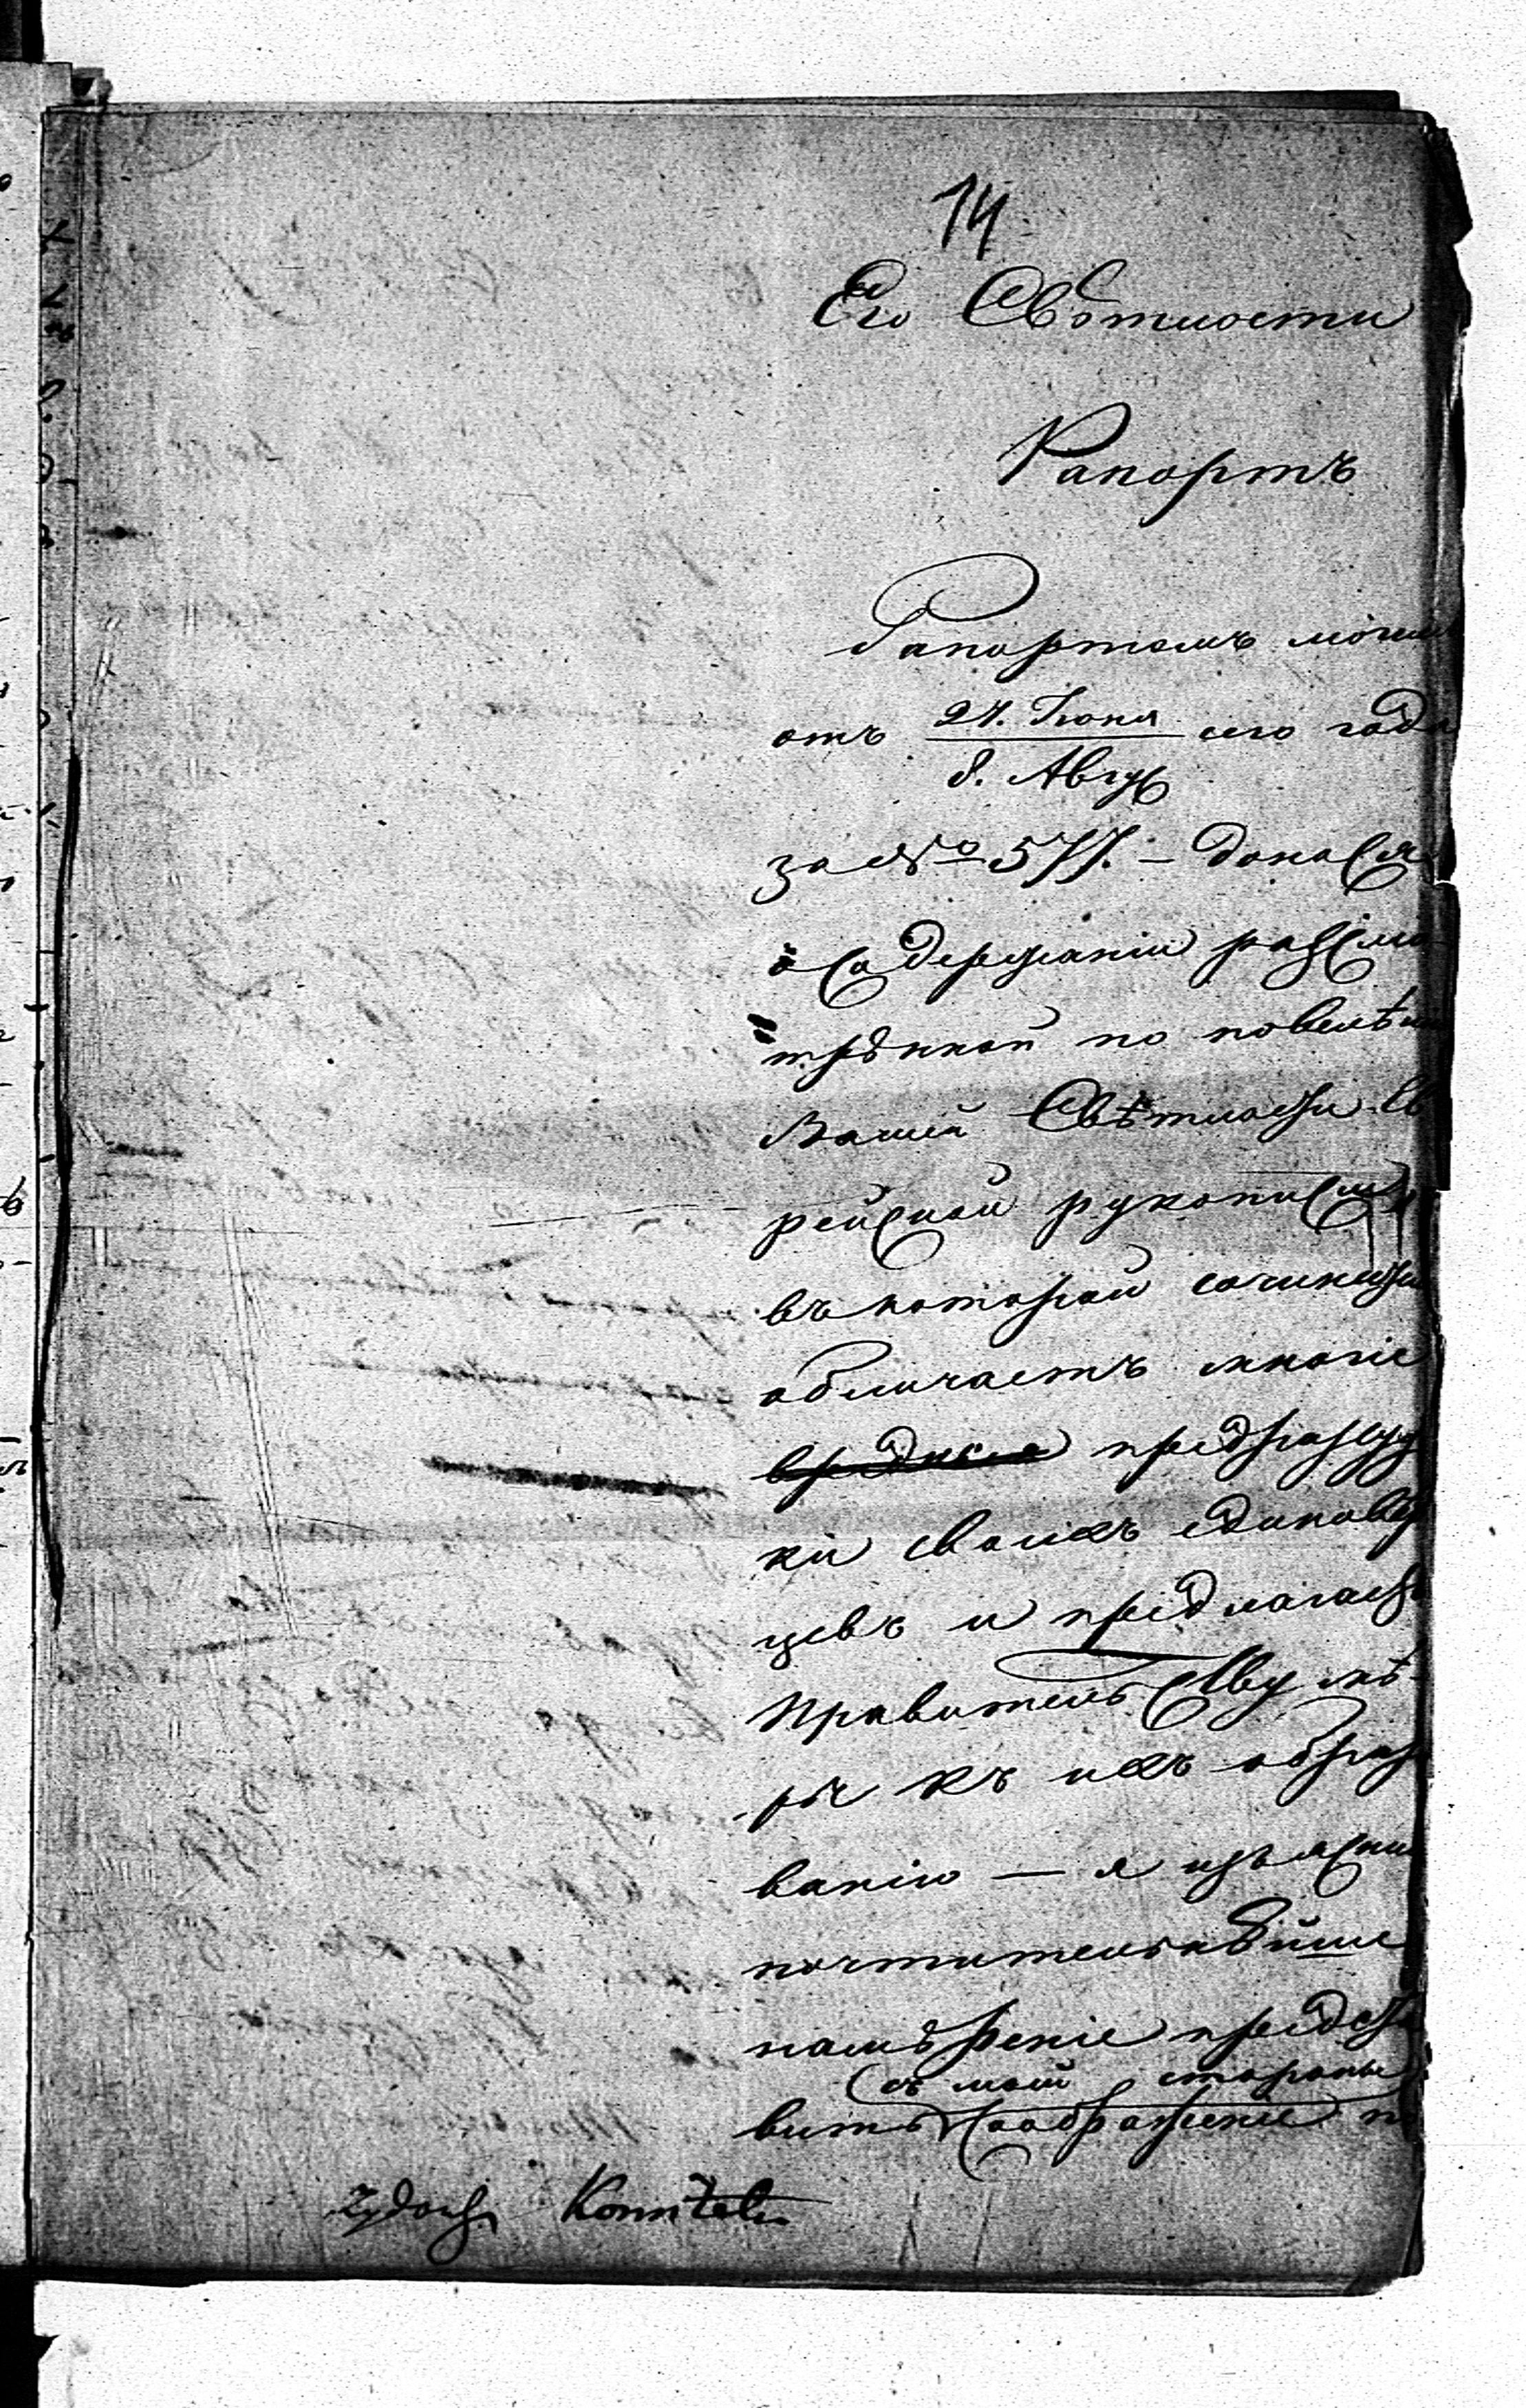 14
Его Свѣтлости
Рапортъ
Рапортомъ моимъ
отъ 27. Іюня / 8. Авгус сего года
за № 577. – донося
о содержаніи разсмо
трѣнной по повелѣнiю
Вашей Свѣтлости Ев
рейской рукописи,
въ которой сочинитель
обличаетъ многіе
вредные предразсуд
ки своихъ единовѣр
цевъ и предлагаетъ
Правительству мѣ-
ры къ ихъ образо
ванію — я изъяснилъ
почтительнѣйше
намѣреніе предста
съ моей стороны
вить соображеніе по
Żydowsk. Komitet